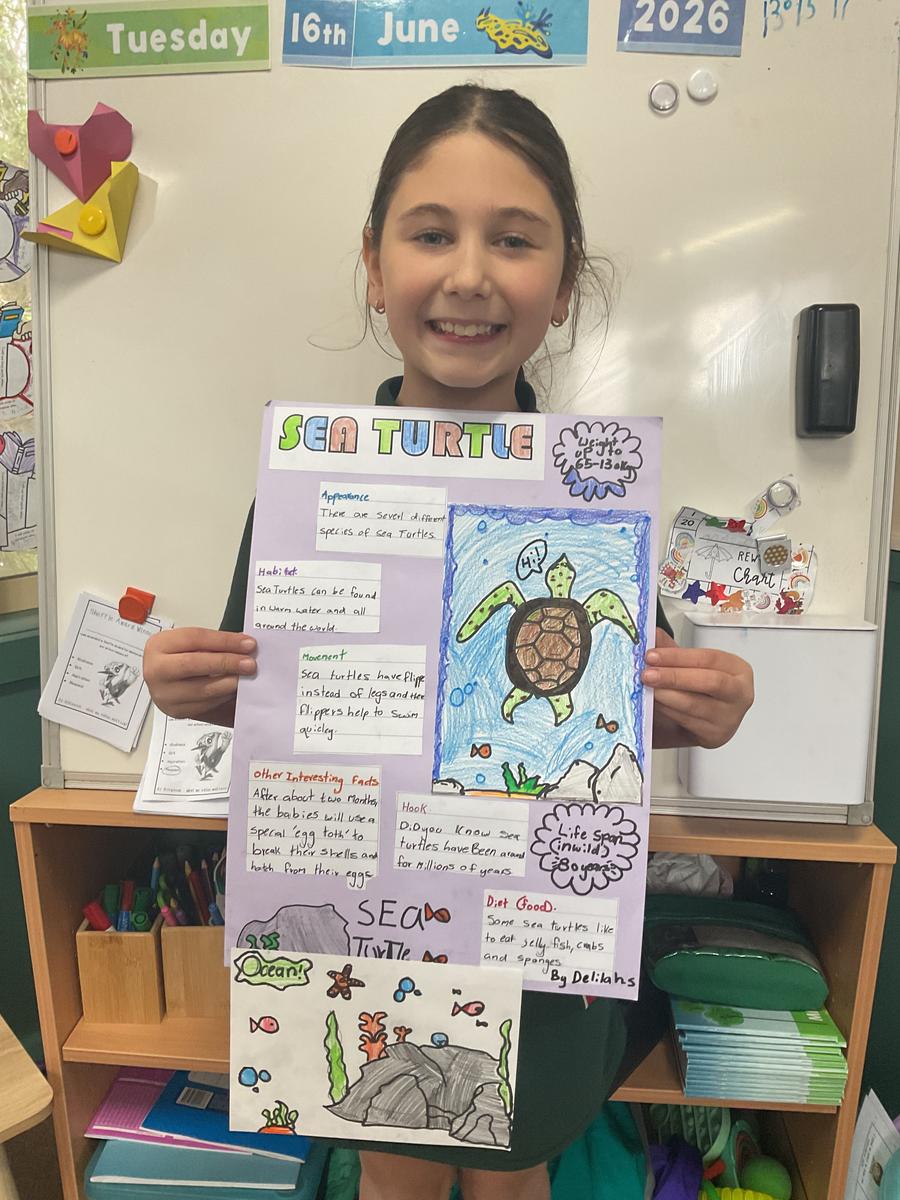 Tuesday
16th
June
2026
SEA TURTLE
Weight
up to
65-130kg
Appearance
There are severl different
species of sea Turtles.
Hi!
Habitat
Sea Turtles can be found
in warm water and all
around the world.
Movement
Sea turtles have flippe
instead of legs and ther
flippers help to swim
quicley.
Other Interesting Facts
After about two Months,
the babies will use a
special 'egg toth' to
break their shells and
hatch from their eggs
Hook
Did you know sea
turtles have Been around
for millions of years
Life span
in wild
80 years
SEA
Turtle
Diet (food).
Some sea turtles like
to eat jelly fish, crabs
and sponges
By Delilah s
Ocean!
20
REW
Chart
Award